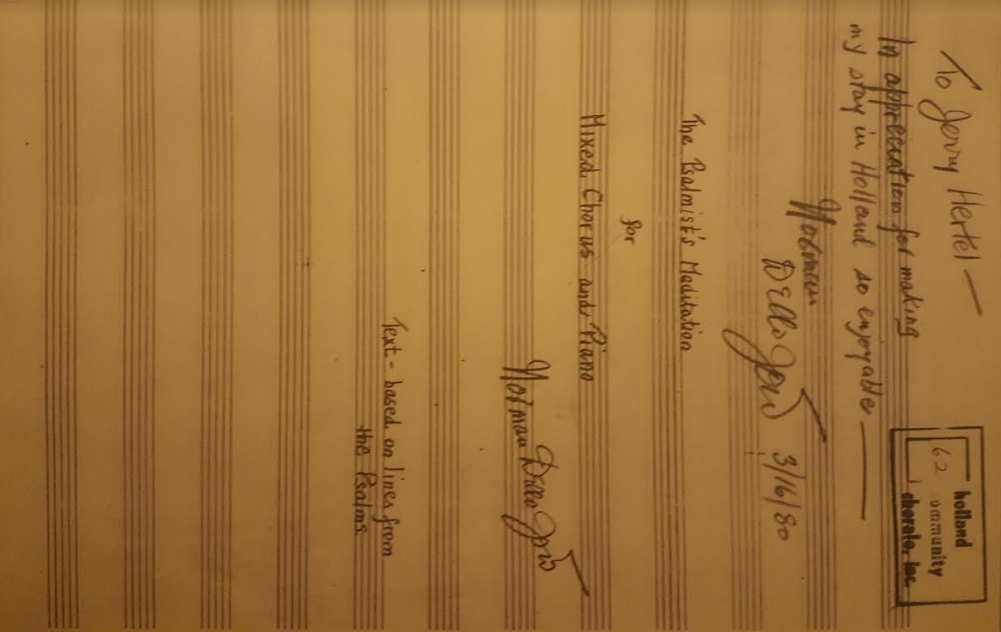 To Jerry Hertel —
In appreciation for making
my stay in Holland so enjoyable —
Norman
Dello Joio 3/16/80
holland
community
chorale, inc.
62
The Psalmist's Meditation
for
Mixed Chorus and Piano
Norman Dello Joio
Text - based on lines from
the Psalms